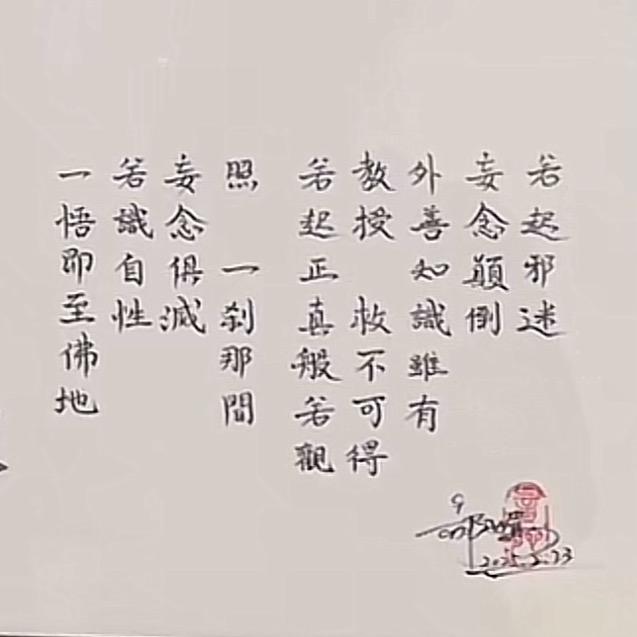 若起邪迷
妄念顛倒
外善知識雖有
教授 救不可得
若起正真般若觀
照 一刹那間
妄念俱滅
若識自性
一悟即至佛地